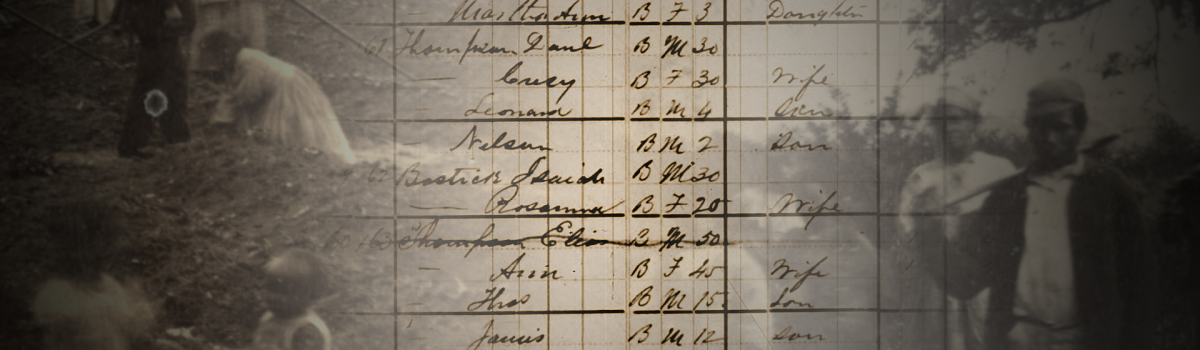 Martha Ann B F 3 Daughter
61 Thompson B M 30
— B F 30 Wife
Leonard B M 4 Son
Nelson B M 2 Son
62 Bostick Isaiah B M 30
— Rosanna B F 20 Wife
63 Thompson Elias B M 50
— Ann B F 45 Wife
— B M 15 Son
James B M 12 Son